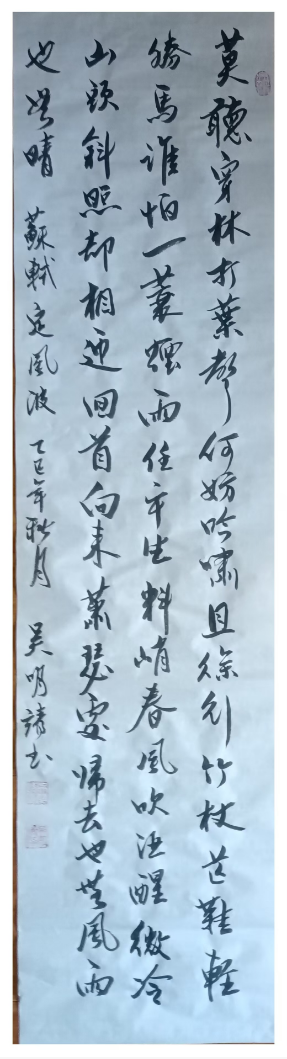 莫聽穿林打葉聲何妨吟嘯且徐行竹杖芒鞋輕
勝馬誰怕一蓑煙雨任平生料峭春風吹酒醒微冷
山頭斜照却相迎回首向來蕭瑟處歸去也無風雨
也無晴 蘇軾定風波 乙巳年秋月 吴明靖书